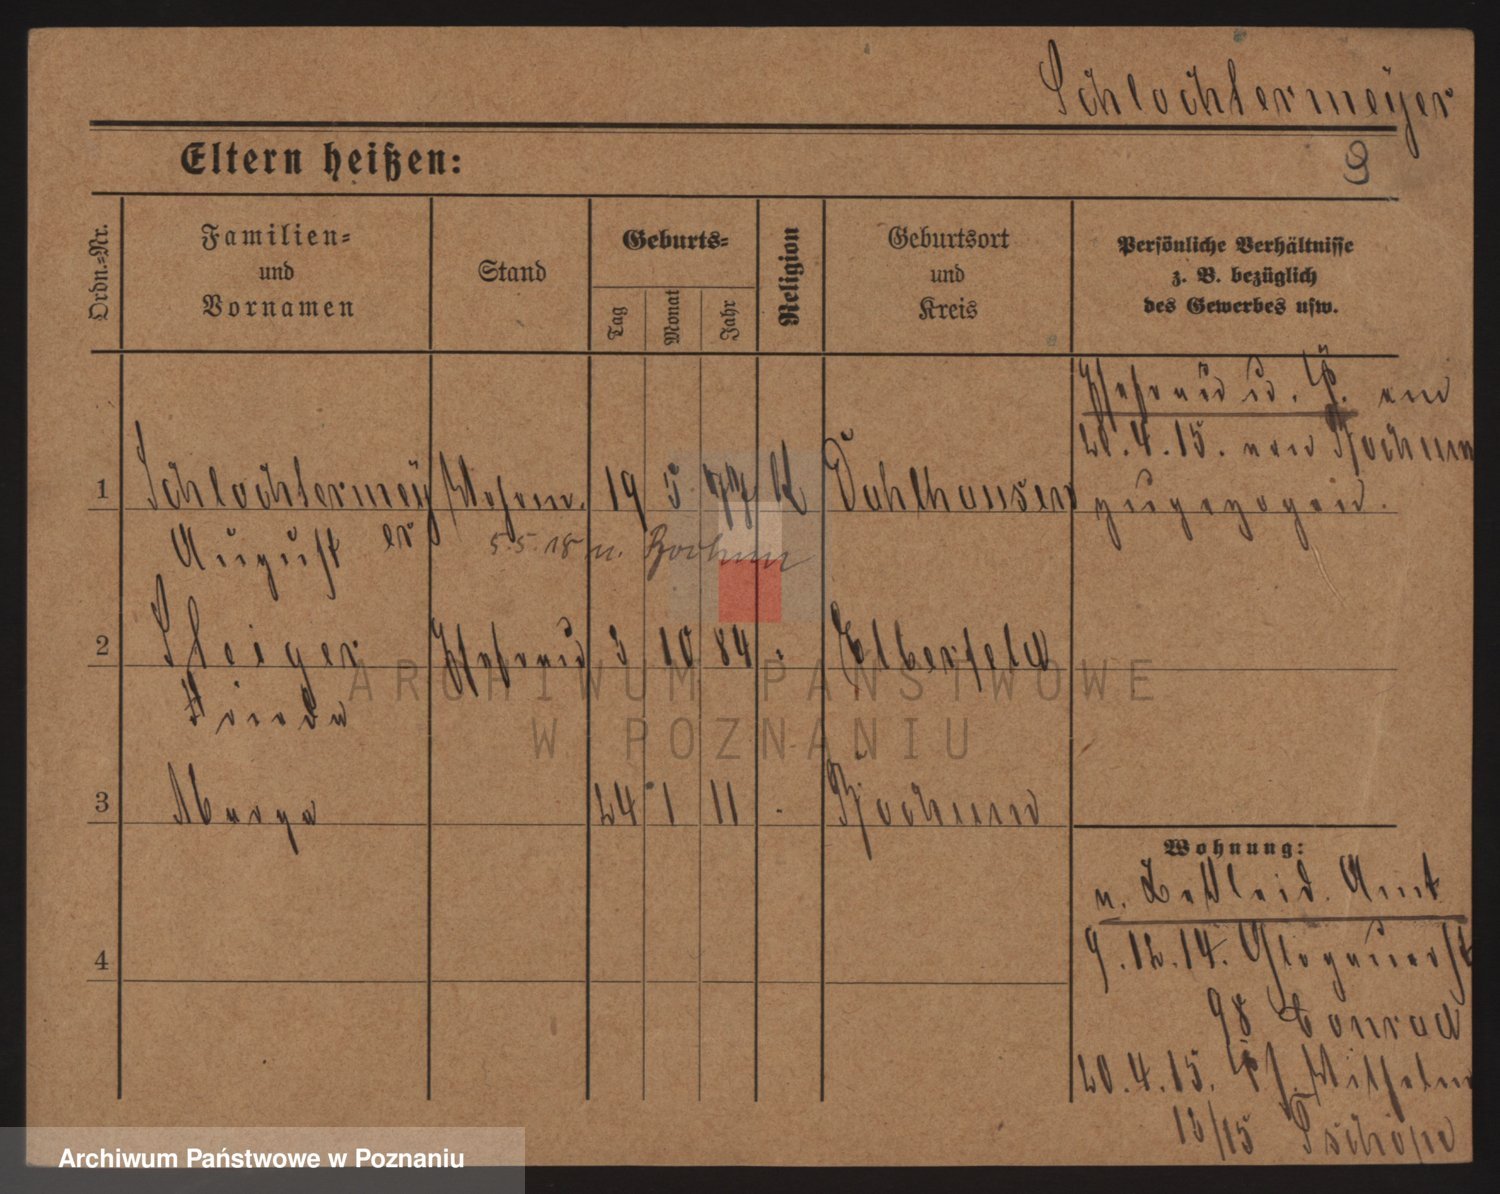 Schlochtermeyer
Eltern heißen:
9
Ordn.=Nr.
Familien=
und
Vornamen
Stand
Geburts=
Tag
Monat
Jahr
Religion
Geburtsort
und
Kreis
Persönliche Verhältnisse
z. B. bezüglich
des Gewerbes usw.
Ehefrau u. K. am
20.4.15. von Bochum
zugezogen.
1
Schlochtermey
19 5 77 K Dahlhausen
August er
5.5.18 n. Bochum
2
Steiger Ehefrau 3 10 84 Elberfeld
Frieda
3
24 1 11 Bochum
4
Wohnung:
n. Amt
9.12.14. Glogauerst
98 Conrad
20.4.15. Wilhelm
13/15 Tschöpe
ARCHIWUM PAŃSTWOWE
W POZNANIU
Archiwum Państwowe w Poznaniu